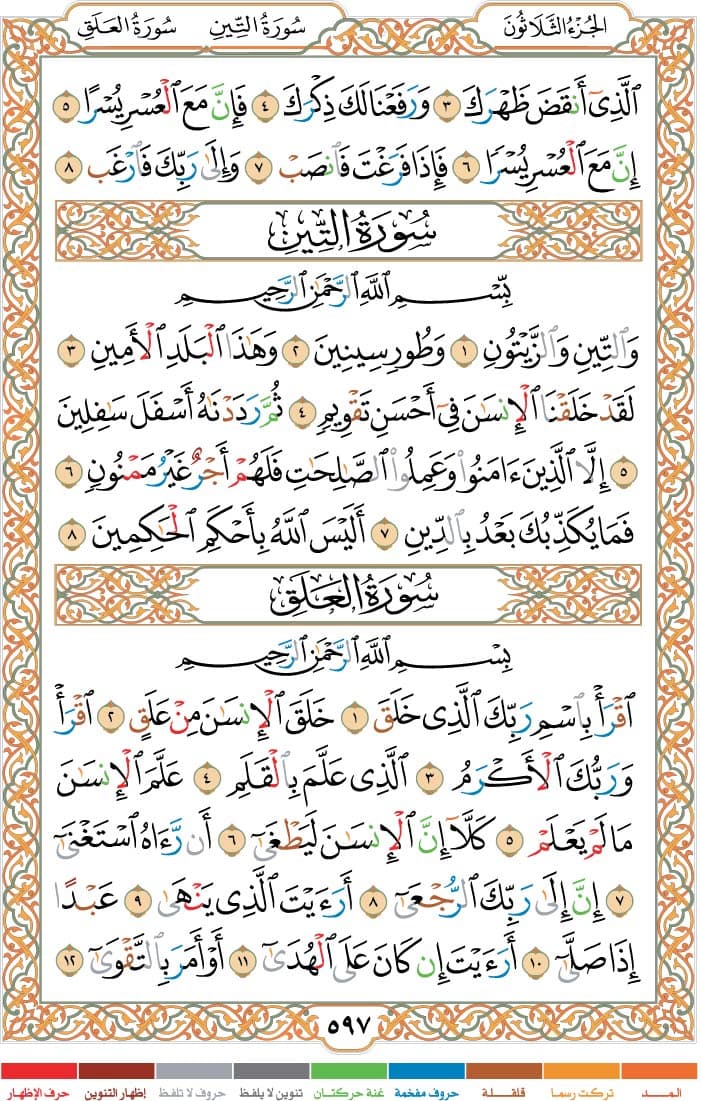 الجُزْءُ الثَّلَاثُونَ سُورَةُ التِّينِ سُورَةُ العَلَقِ
ٱلَّذِىٓ أَنقَضَ ظَهْرَكَ ٣ وَرَفَعْنَا لَكَ ذِكْرَكَ ٤ فَإِنَّ مَعَ ٱلْعُسْرِ يُسْرًا ٥
إِنَّ مَعَ ٱلْعُسْرِ يُسْرًا ٦ فَإِذَا فَرَغْتَ فَٱنصَبْ ٧ وَإِلَىٰ رَبِّكَ فَٱرْغَب ٨
سُورَةُ التِّينِ
بِسْمِ ٱللَّهِ ٱلرَّحْمَٰنِ ٱلرَّحِيمِ
وَٱلتِّينِ وَٱلزَّيْتُونِ ١ وَطُورِ سِينِينَ ٢ وَهَٰذَا ٱلْبَلَدِ ٱلْأَمِينِ ٣
لَقَدْ خَلَقْنَا ٱلْإِنسَٰنَ فِىٓ أَحْسَنِ تَقْوِيمٍ ٤ ثُمَّ رَدَدْنَٰهُ أَسْفَلَ سَٰفِلِينَ
٥ إِلَّا ٱلَّذِينَ ءَامَنُوا۟ وَعَمِلُوا۟ ٱلصَّٰلِحَٰتِ فَلَهُمْ أَجْرٌ غَيْرُ مَمْنُونٍ ٦
فَمَا يُكَذِّبُكَ بَعْدُ بِٱلدِّينِ ٧ أَلَيْسَ ٱللَّهُ بِأَحْكَمِ ٱلْحَٰكِمِينَ ٨
سُورَةُ العَلَقِ
بِسْمِ ٱللَّهِ ٱلرَّحْمَٰنِ ٱلرَّحِيمِ
ٱقْرَأْ بِٱسْمِ رَبِّكَ ٱلَّذِى خَلَقَ ١ خَلَقَ ٱلْإِنسَٰنَ مِنْ عَلَقٍ ٢ ٱقْرَأْ
وَرَبُّكَ ٱلْأَكْرَمُ ٣ ٱلَّذِى عَلَّمَ بِٱلْقَلَمِ ٤ عَلَّمَ ٱلْإِنسَٰنَ
مَا لَمْ يَعْلَمْ ٥ كَلَّآ إِنَّ ٱلْإِنسَٰنَ لَيَطْغَىٰٓ ٦ أَن رَّءَاهُ ٱسْتَغْنَىٰٓ
٧ إِنَّ إِلَىٰ رَبِّكَ ٱلرُّجْعَىٰٓ ٨ أَرَءَيْتَ ٱلَّذِى يَنْهَىٰ ٩ عَبْدًا
إِذَا صَلَّىٰٓ ١٠ أَرَءَيْتَ إِن كَانَ عَلَى ٱلْهُدَىٰٓ ١١ أَوْ أَمَرَ بِٱلتَّقْوَىٰٓ ١٢
٥٩٧
المـــد تركت رسما قلقـــلة حروف مفخمة غنة حركتـــان تنوين لا يلفظ حروف لا تلفظ إظهار التنوين حرف الإظهار